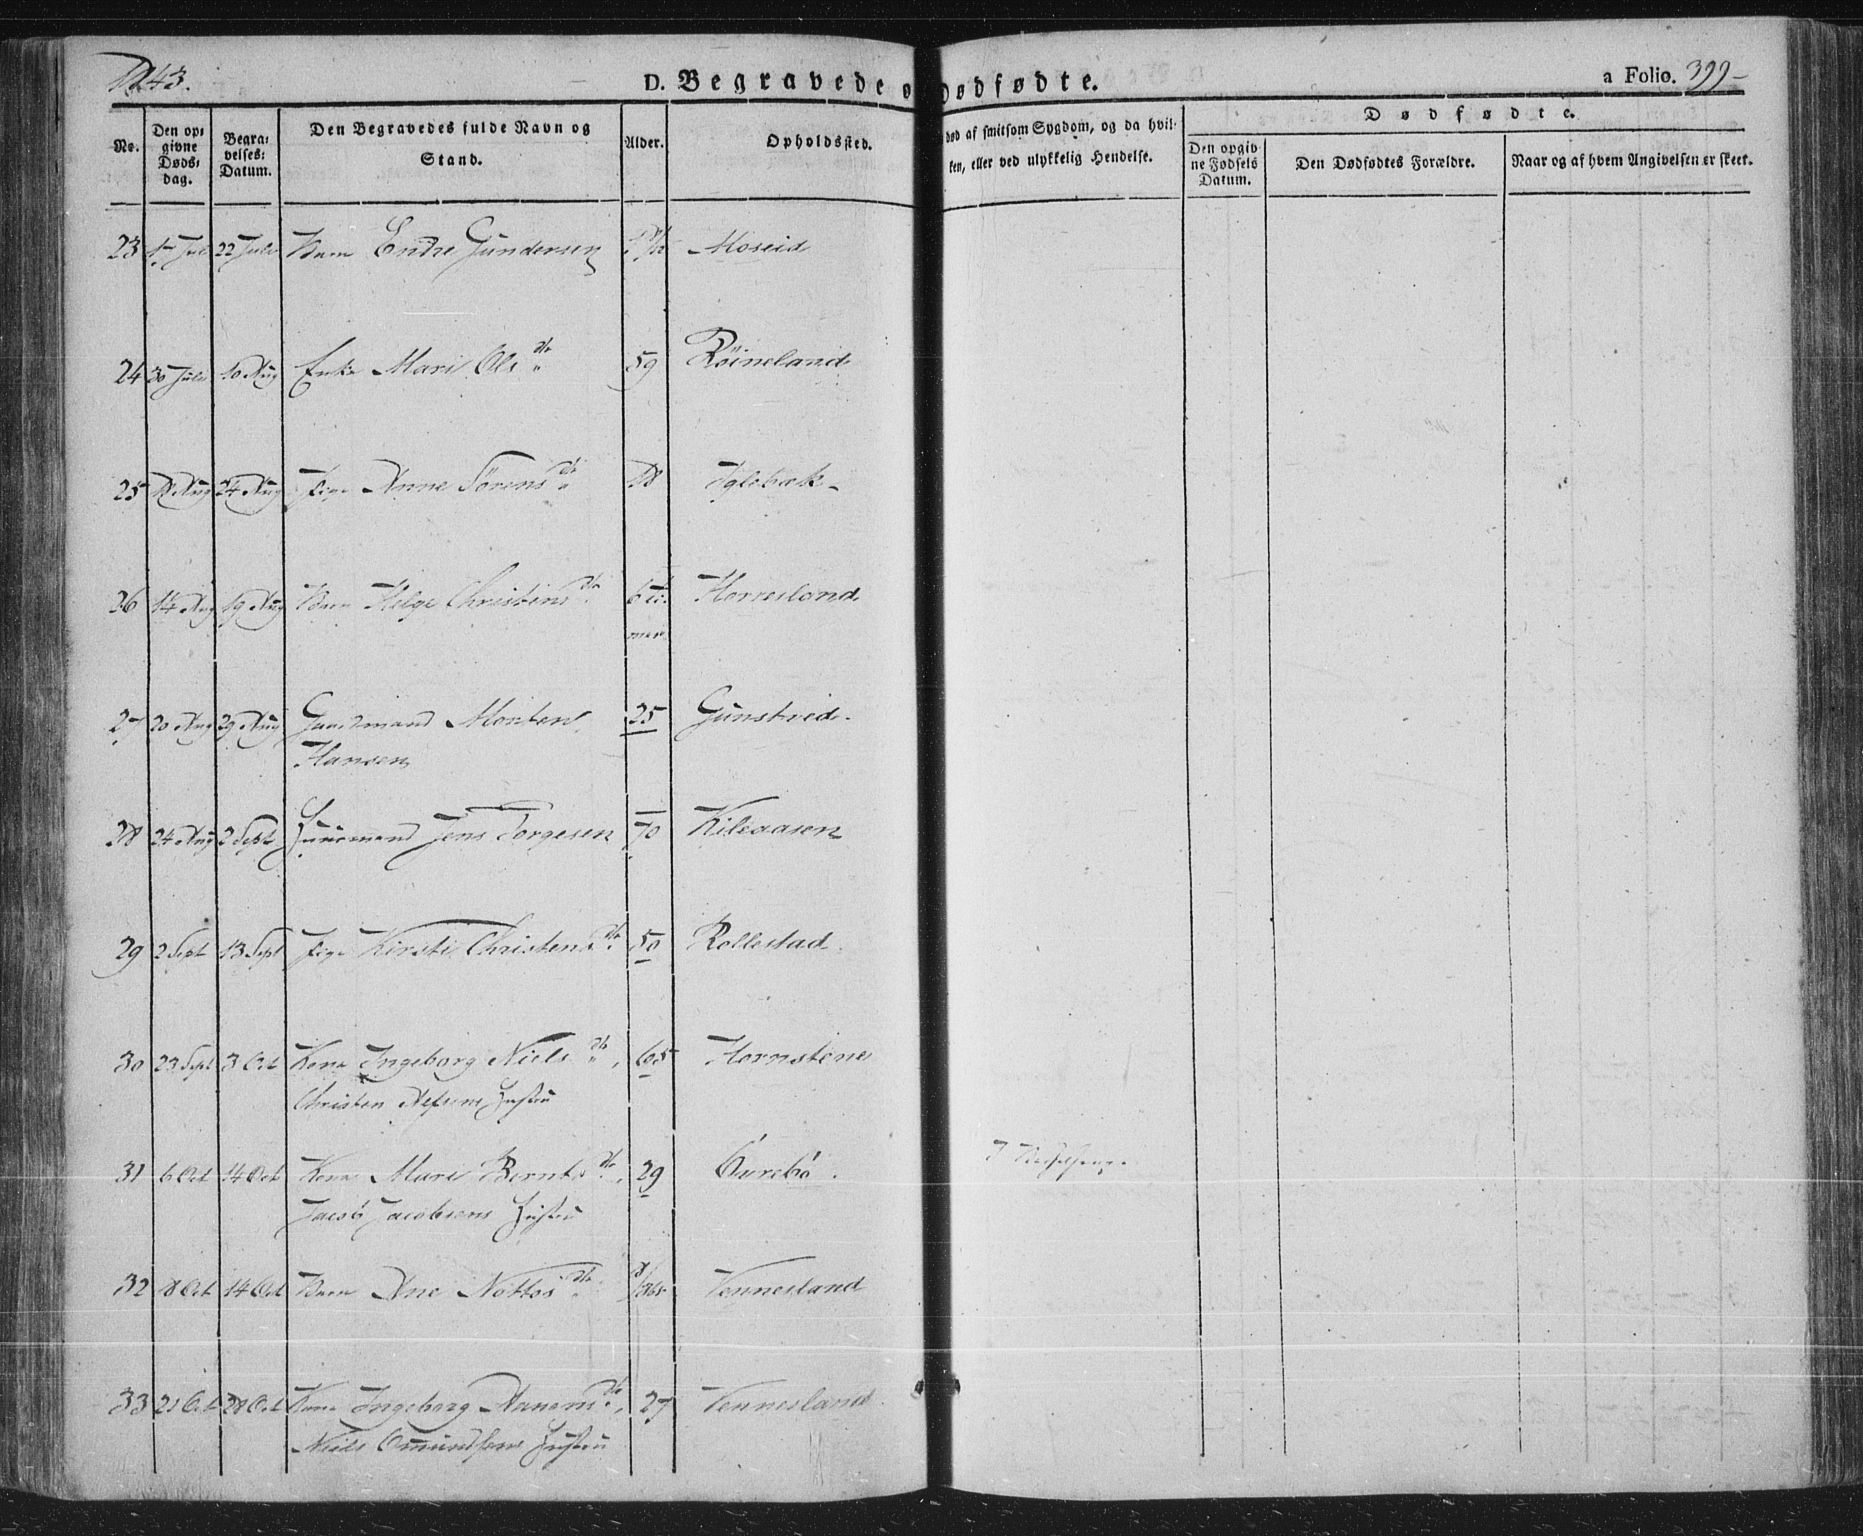 1843.
D. Begravede o Dødfødte.
a Folio. 399-
No.
Den op:
givne
Døds:
dag.
Begra:
velses:
Datum.
Den Begravedes fulde Navn og
Stand.
Alder.
Opholdssted.
død af smitsom Sygdom, og da hvil:
ken, eller ved ulykkelig Hendelse.
Dødfødte.
Den opgiv
ne Fødsels
Datum.
Den Dødfødtes Forældre.
Naar og af hvem Angivelsen er skeet.
23 17 Juli 22 Juli Barn Endre Gundersen Moseid
24 30 Juli 10 Aug Enke Mari Ols dtr 59 Röineland
25 Aug 24 Aug Pige Anne Sörens dtr 18 Iglebæk
26 14 Aug 19 Aug Barn Helge Christens dtr 6 Horresland
27 20 Aug 29 Aug Gaardmand Morten 25 Gunstved
Hansen
28 24 Aug 2 Sept Huusmand Jens Torgesen 70 Kileaasen
29 2 Sept 13 Sept Pige Kirsti Christens dtr 50 Rollestad
30 23 Sept 3 Oct Kone Ingeborg Niels dtr, 65 Hornstene
Christen Hustru
31 6 Oct 14 Oct Kone Mari Bernts dtr, 29 Aurebö. I Barselseng
Jacob Jacobsens Hustru
32 8 Oct 14 Oct Barn Ane Nottos dtr 8/365 Vennesland
33 21 Oct 28 Oct Kone Ingeborg Aanons dtr, 27 Vennesland
Niels Omundsens Hustru